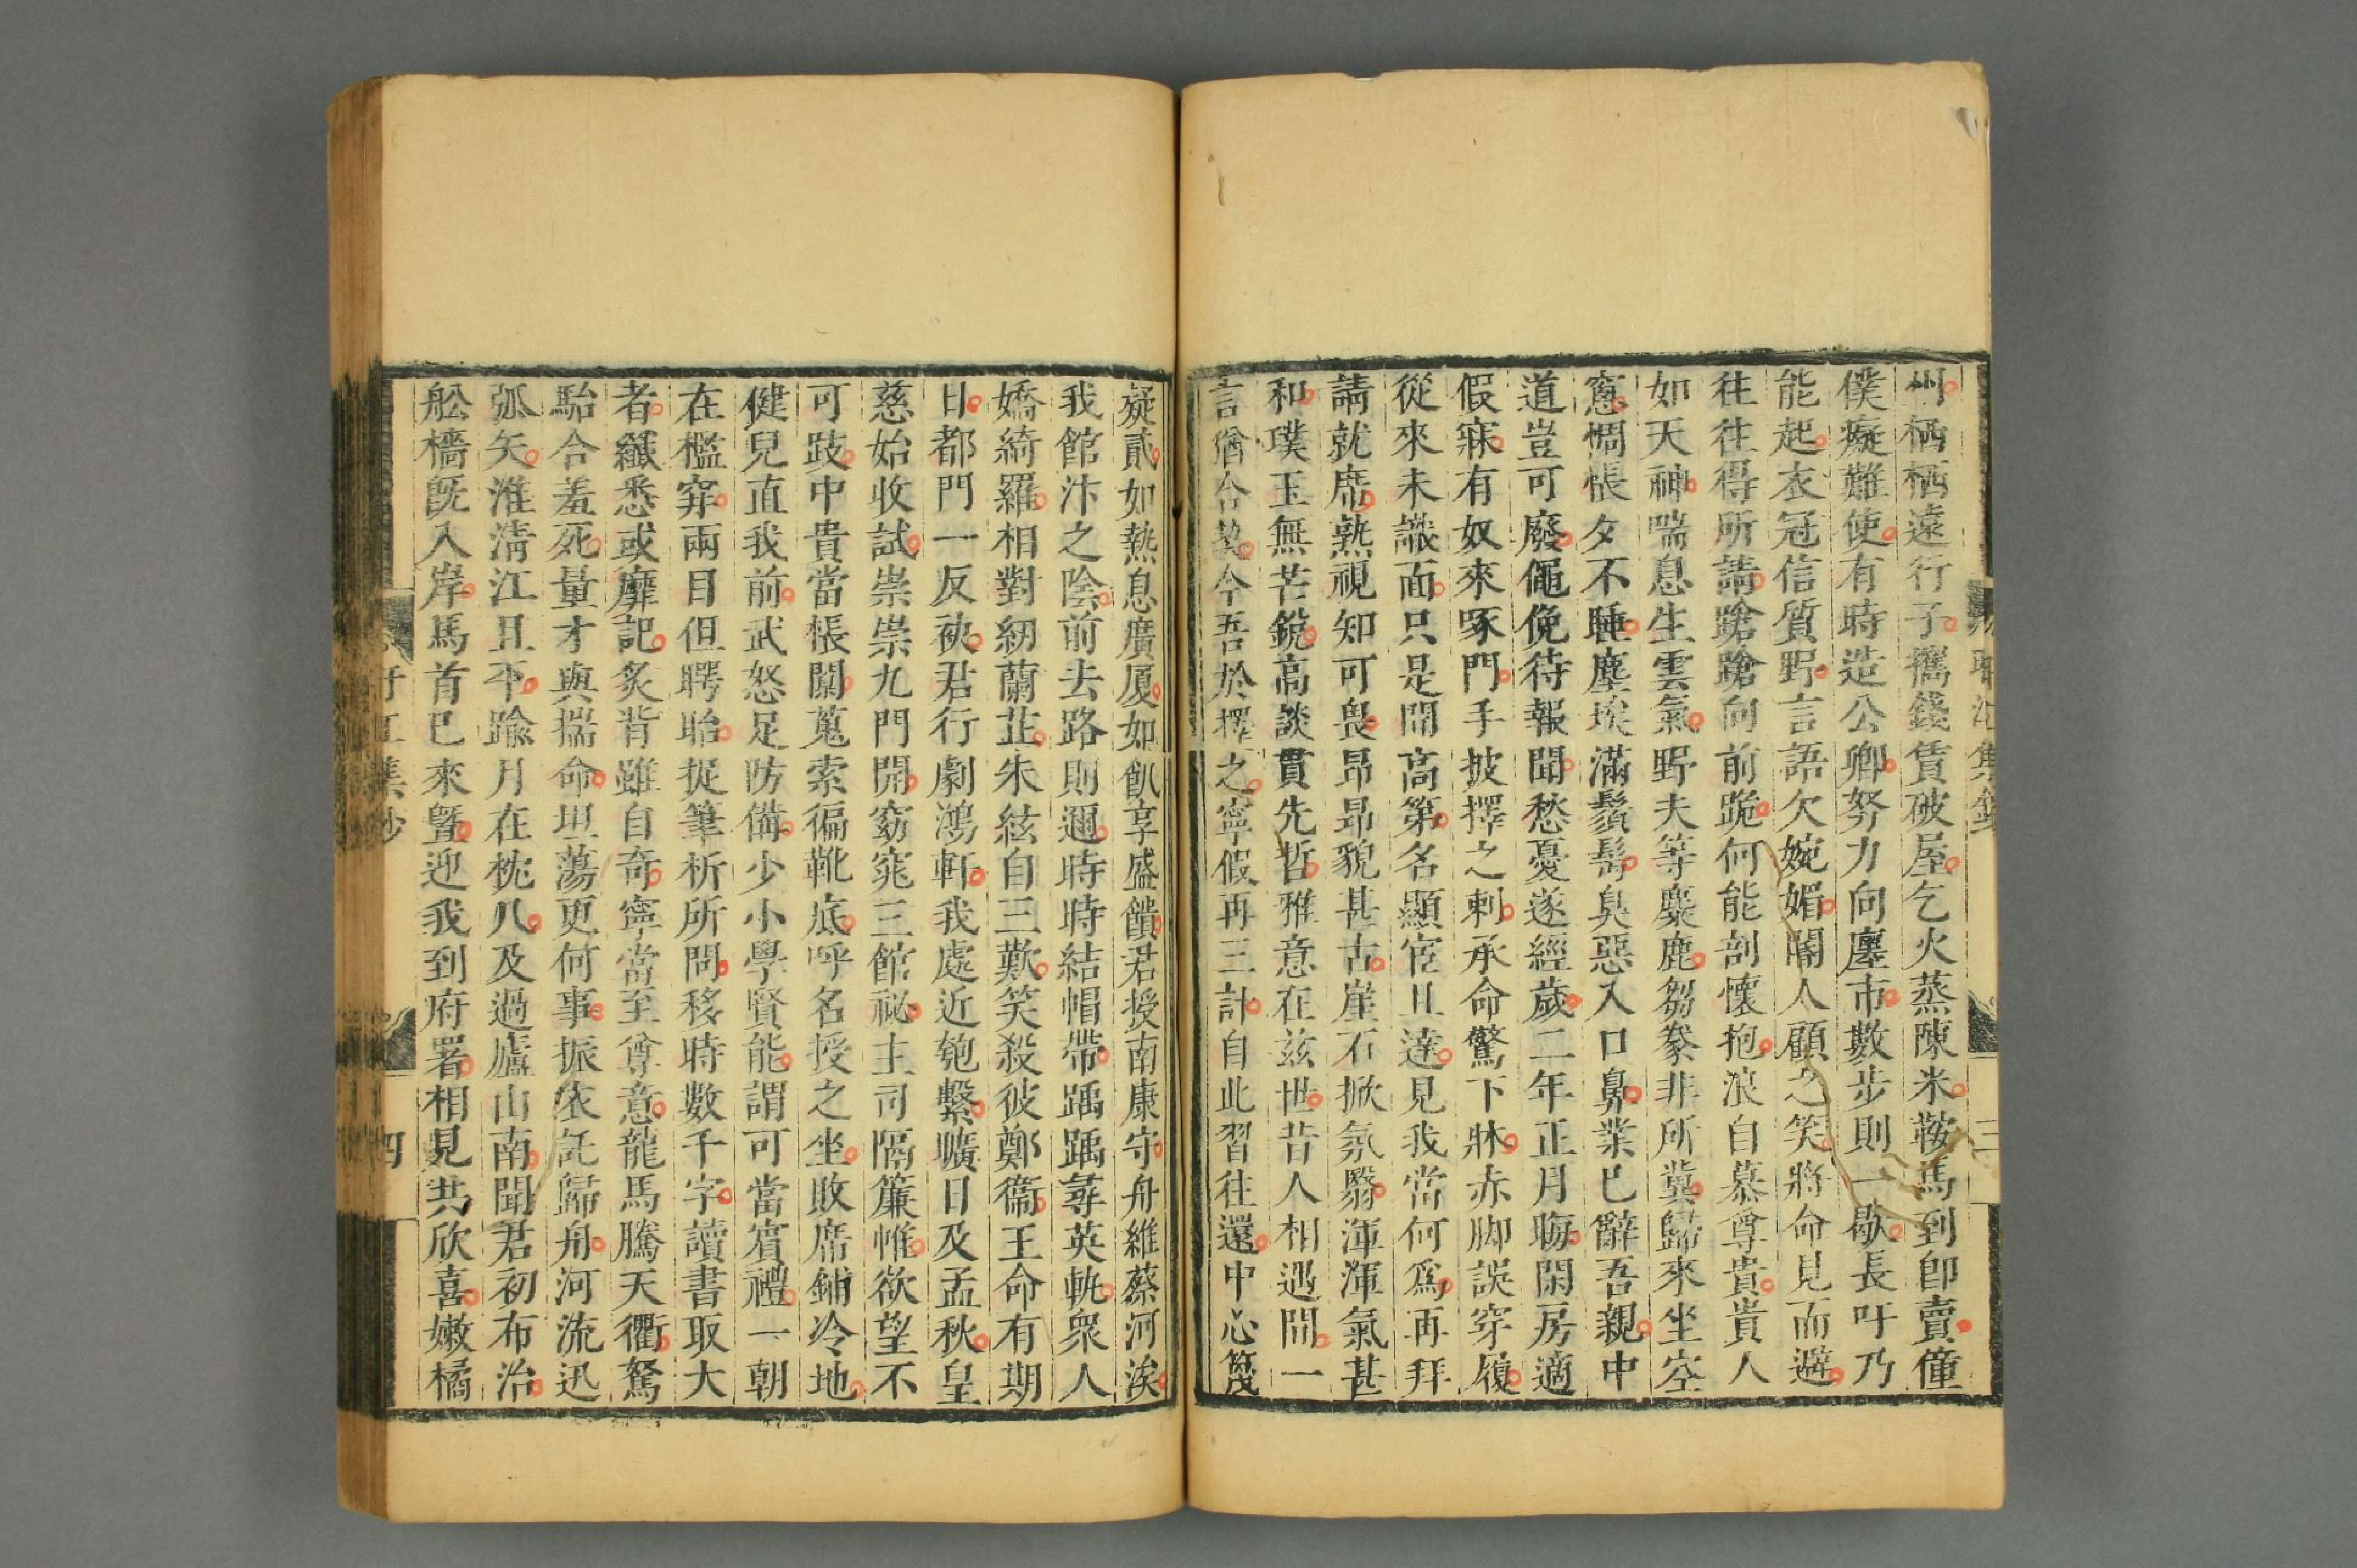 州栖栖遠行子攜錢賃破屋乞火蒸陳米鞍馬到卽賣僮
僕癡難使有時造公卿努力向廛市數步則一歇長吁乃
能起衣冠信質野言語欠婉媚閽人顧之笑將命見而避
往往得所請蹌蹌向前跪何能剖懷抱浪自慕尊貴貴人
如天神喘息生雲氣野夫等麋鹿芻豢非所冀歸來坐空
窻惆悵夕不睡塵埃滿鬚髯臭惡入口鼻業已辭吾親中
道豈可廢僶俛待報聞愁憂遂經歲二年正月晦閑房適
假寐有奴來啄門手披擇之刺承命驚下牀赤脚誤穿履
從來未識面只是聞高第名顯宦且達見我當何爲再拜
請就席熟視知可畏昂昂貌甚古崖石掀氛翳渾渾氣甚
和璞玉無芒銳高談貫先哲雅意在茲世昔人相遇間一
言猶合契今吾於擇之寧假再三計自此習往還中心篾
疑貳如熱息廣厦如飢享盛饋君授南康守舟維蔡河涘
我館汴之陰前去路則邇時時結帽帶踽踽尋英軌衆人
嬌綺羅相對紉蘭茝朱絃自三歎笑殺彼鄭衞王命有期
日都門一反袂君行劇鴻軒我處近匏繫曠日及孟秋皇
慈始收試崇崇九門開窈窕三館祕主司隔簾帷欲望不
可跂中貴當悵闑蒐索徧靴底呼名授之坐敗席鋪冷地
健兒直我前武怒足防備少小學賢能謂可當賓禮一朝
在檻穽兩目但睜眙捉筆析所問移時數千字讀書取大
者纖悉或靡記炙背雖自奇寧當至尊意龍馬騰天衢駑
駘合羞死量才與揣命坦蕩更何事振衣託歸舟河流迅
弧矢淮淸江且平踰月在枕几及過廬山南聞君初布治
舩檣旣入岸馬首已來曁迎我到府署相見共欣喜嫩橘